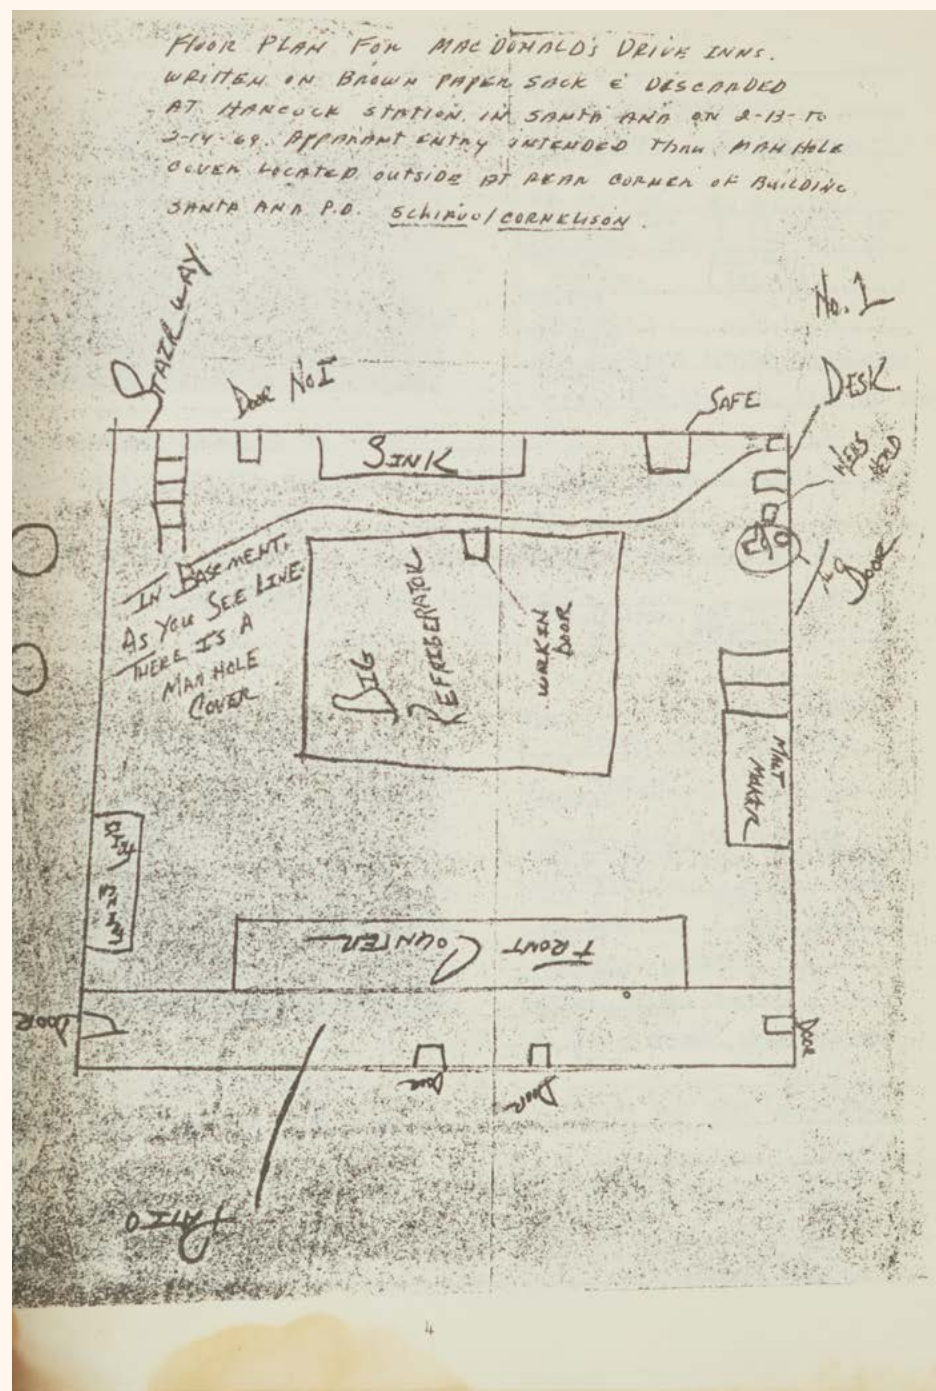 FLOOR PLAN FOR MACDONALD'S DRIVE INNS.
WRITTEN ON BROWN PAPER SACK & DISCARDED
AT HANCOCK STATION IN SANTA ANA ON 2-13-TO
2-14-69. APPARANT ENTRY INTENDED THRU MAN HOLE
COVER LOCATED OUTSIDE AT REAR CORNER OF BUILDING
SANTA ANA P.D. SCHIAVO/CORNELISON.
No. 1
STAIRWAY
DOOR No I
SAFE
DESK.
SINK
DOOR
IN BASEMENT.
AS YOU SEE LINE
THERE IS A
MAN HOLE
COVER
BIG
REFRIGERATOR
WALK IN
DOOR
MALT
MAKER
FRONT COUNTER
DOOR
DOOR
DOOR
DOOR
PATIO
4